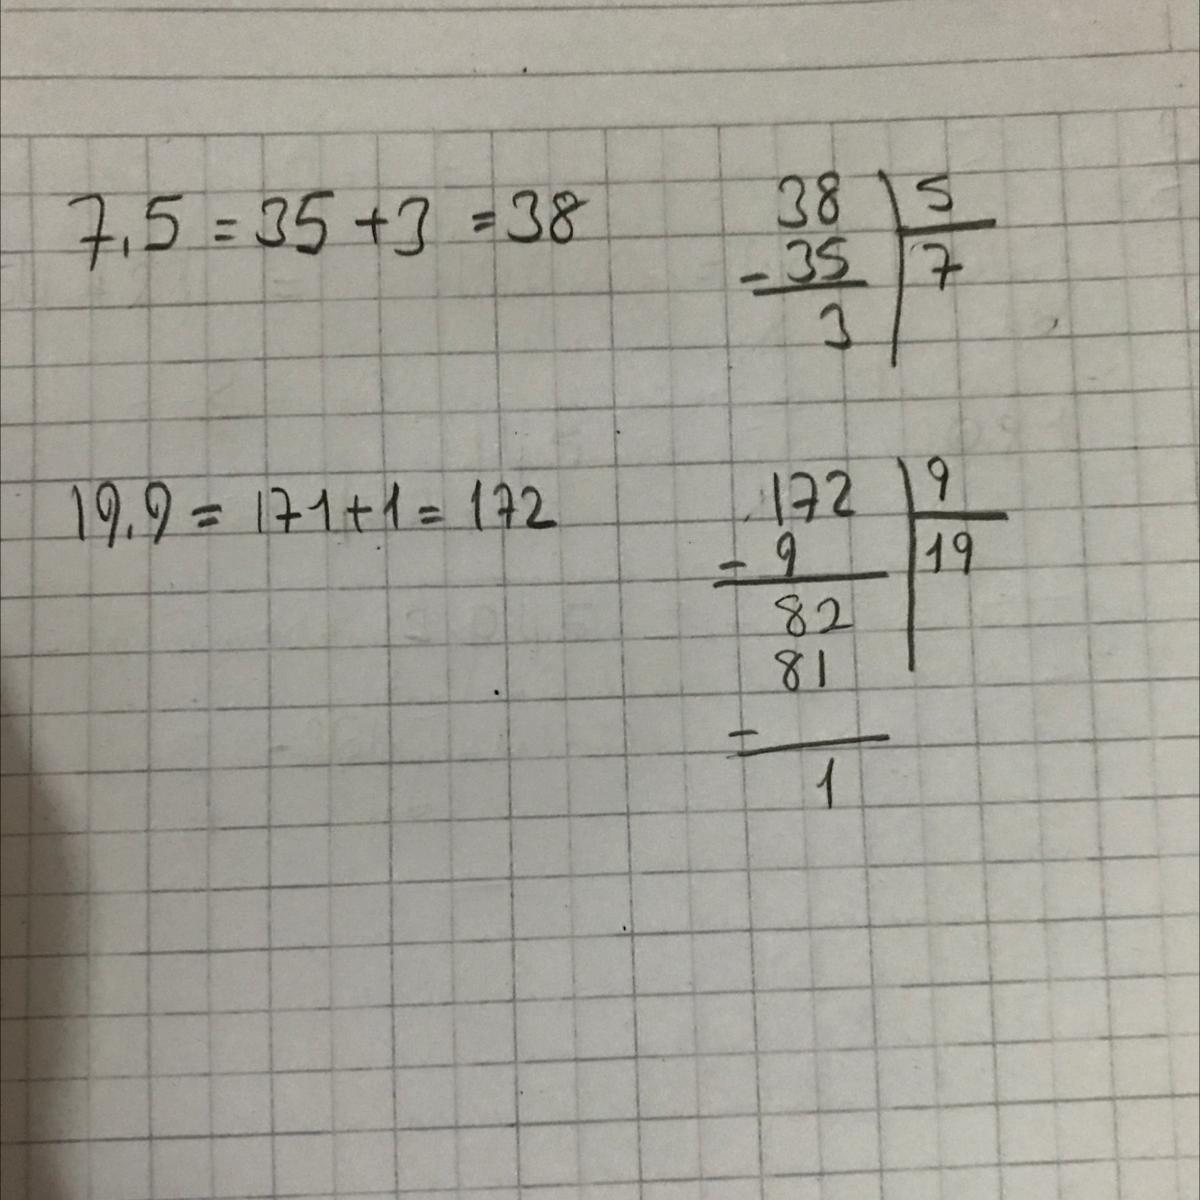 7.5 = 35 + 3 = 38
38 5
- 35 7
3
19.9 = 171 + 1 = 172
172 9
- 9 19
82
81
-
1